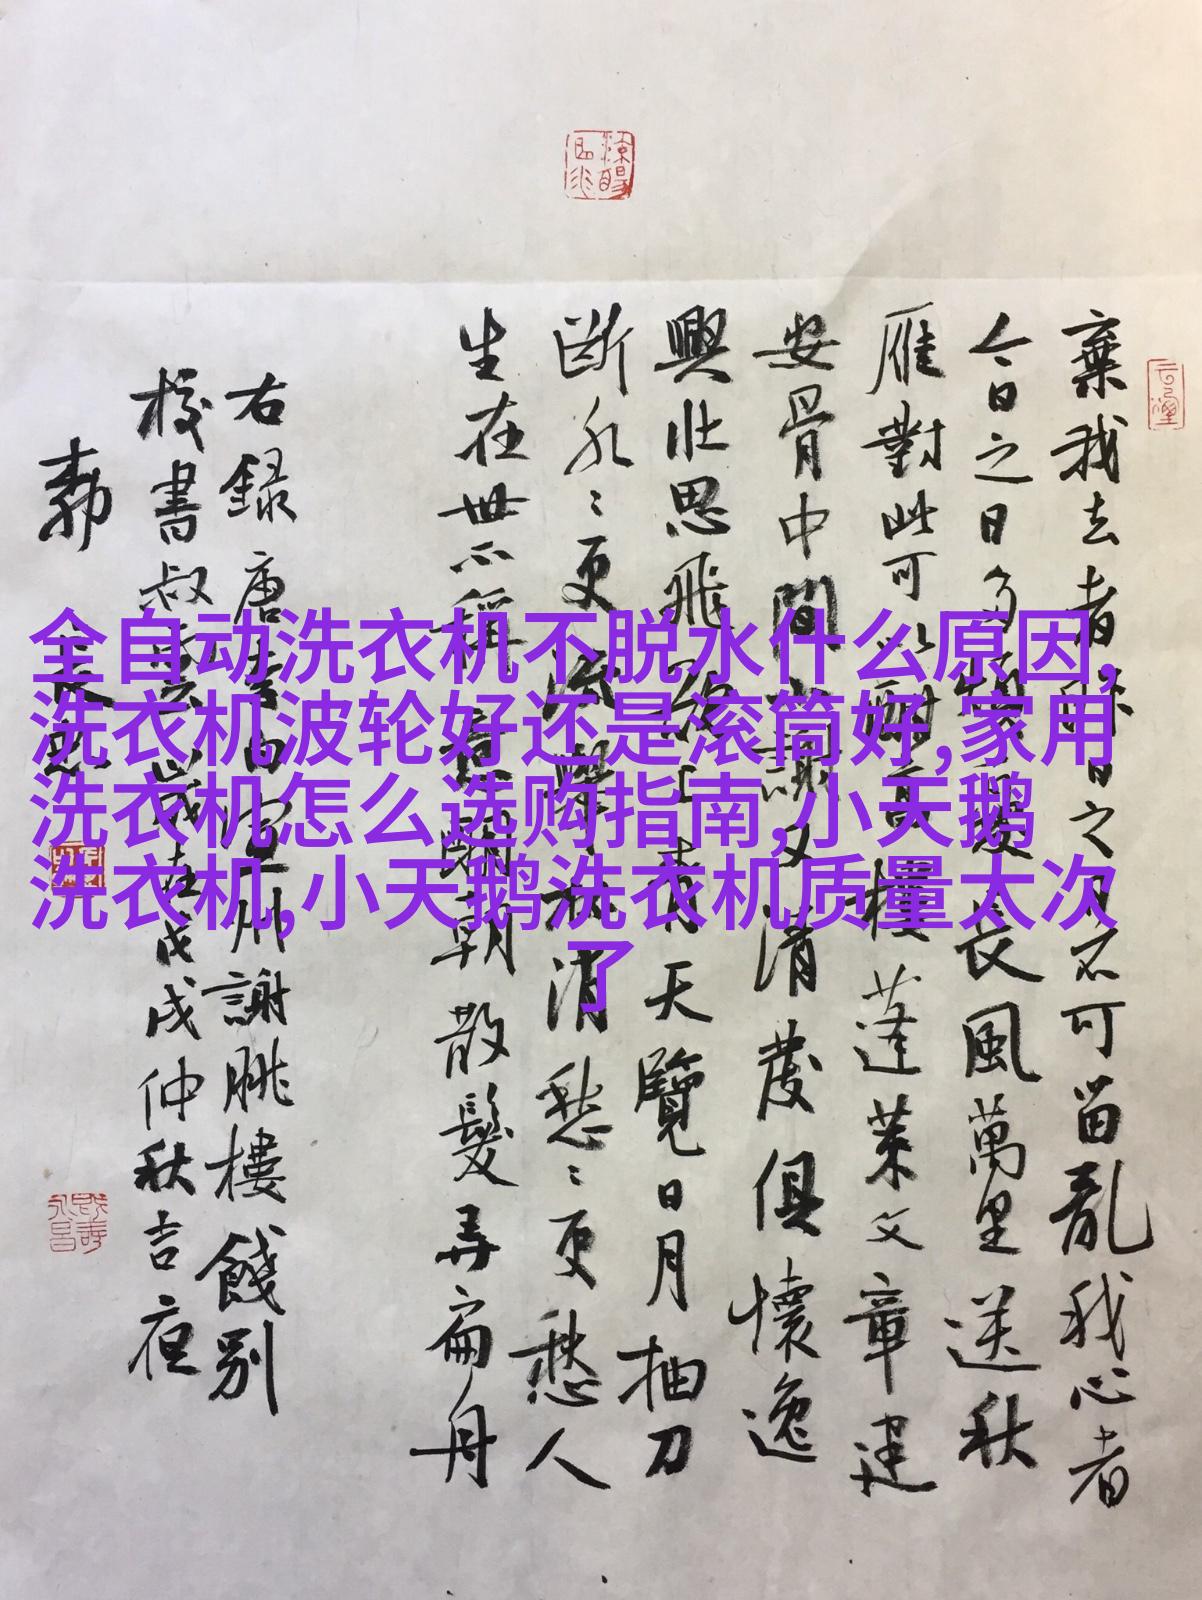 全自动洗衣机不脱水什么原因,
洗衣机波轮好还是滚筒好,家用
洗衣机怎么选购指南,小天鹅
洗衣机,小天鹅洗衣机质量太次
了
棄我去者昨日之日不可留亂我心者
今日之日多煩憂長風萬里送秋
雁對此可以酣高樓蓬萊文章建
安骨中間小謝又清發俱懷逸
興壯思飛欲上青天覽日月抽刀
断水々更流舉杯消愁々更愁人
生在世不稱意明朝散髮弄扁舟
右録唐李白宣州謝朓樓餞别
校書叔雲歲在戊戌仲秋吉夜